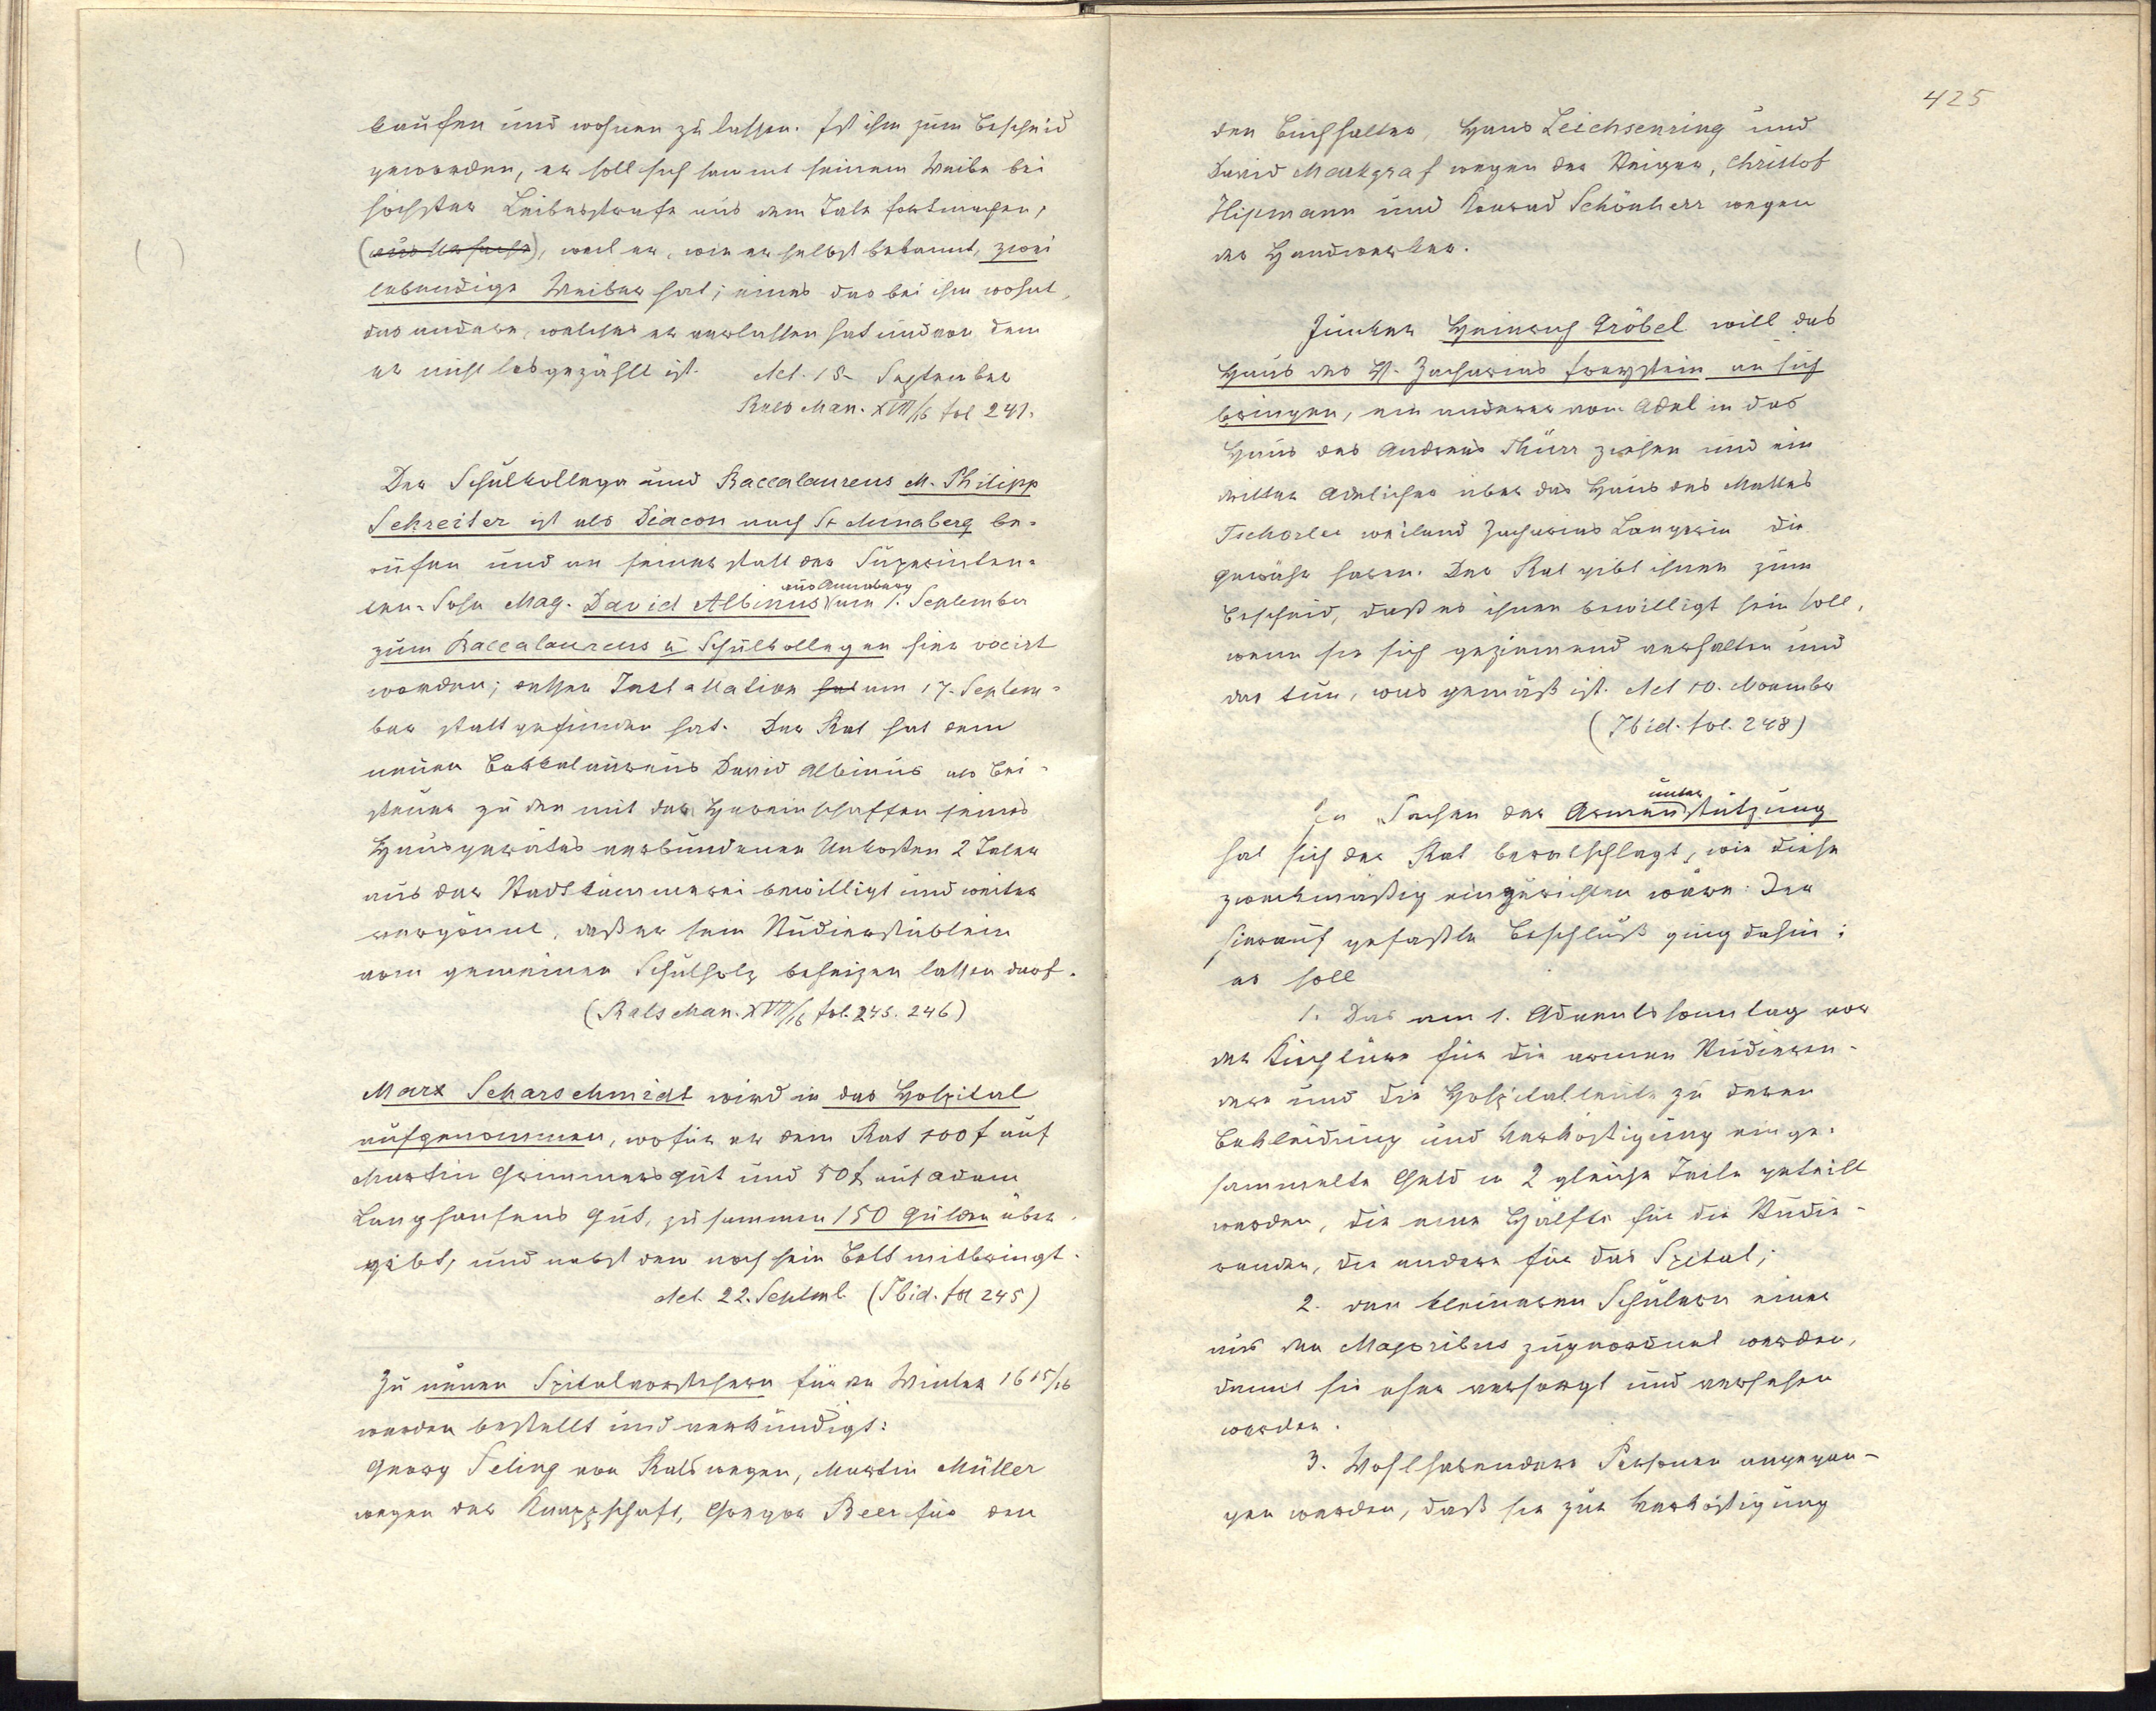 kaufen und wohnen zu lassen. Ist ihm zum Bescheid
geworden, er soll sich sammt seinem Weibe bei
höchster Leibesstrafe aus dem Tale fortmachen,
weil er, wie er selbst bekannt, zwei
lebendige Weiber hat; eines das bei ihm wohnt,
das andere, welches er verlassen hat und von dem
er nicht losgezählt ist. Act. 15. September
Rats Man. XVII/16 fol 241.
Der Schulkollega und Baccalaureus M. Philipp
Schreiter ist als Diacon nach St Annaberg be-
rufen und an seiner statt des Superinten-
ten-Sohn Mag. David Albinus aus Annaberg am 1. September
zum Baccalaureus u Schulkollegen hier vocirt
worden; dessen Installation hat am 17. Septem-
ber stattgefunden hat. Der Rat hat dem
neuen Bakkalaureus David Albinus als Bei-
steuer zu den mit der Hereinschaffen seines
Hausgerätes verbundenen Unkosten 2 Taler
aus der Stadtkämmerei bewilligt und weiter
vergönnt, daß er sein Studierstüblein
vom gemeinen Schulholz beheizen lassen darf.
(Rats Man. XVII/16 fol. 245. 246)
Marx Scharschmidt wird in das Hospital
aufgenommen, wofür er dem Rat 100 f auf
Martin Grimmers Gut und 50 f auf Adam
Langhansens Gut, zusammen 150 Gulden über-
gibt, und nebst dem noch sein Bett mitbringt.
Act. 22. Septmb. (Ibid. fol 245)
Zu neuen Spitalvorstehern für den Winter 1615/16
werden bestellt und verkündigt:
Georg Seling von Rats wegen, Martin Müller
wegen der Knappschaft, Gregor Beer für den
425
den Buchhalter, Hans Leichsenring und
David Markgraf wegen der Steiger, Christof
Hipmann und Konrad Schönherr wegen
der Handwerker.
Junker Heinrich Gröbel will das
Haus des H. Zacharias Freystein an sich
bringen, ein anderer vom Adel in das
Haus des Andreas Thürr ziehen und ein
dritter Adelicher über das Haus des Mattes
Tschorler weiland Zacharias Langerin die
Gewähr haben. Der Rat gibt ihnen zum
Bescheid, daß es ihnen bewilligt sein soll,
wenn sie sich geziemend verhalten und
das tun, was gemäß ist. Act 10. November
(Ibid. fol. 248)
In Sachen der Armenunterstützung
hat sich der Rat beratschlagt, wie diese
zweckmäßig einzurichten wäre. Der
hierauf gefaßte Beschluß ging dahin:
es soll
1. Das am 1. Adventssonntag vor
der Kirchtüre für die armen Studieren-
den und die Hospitalleute zu deren
Bekleidung und Verköstigung einge-
sammelte Geld in 2 gleiche Teile geteilt
werden, die eine Hälfte für die Studie-
renden, die andere für das Spital;
2. den kleineren Schülern einer
aus den Majoribus zugeordnet werden,
damit sie eher versorgt und versehen
werden.
3. Wohlhabendere Personen angegan-
gen werden, daß sie zur Verköstigung